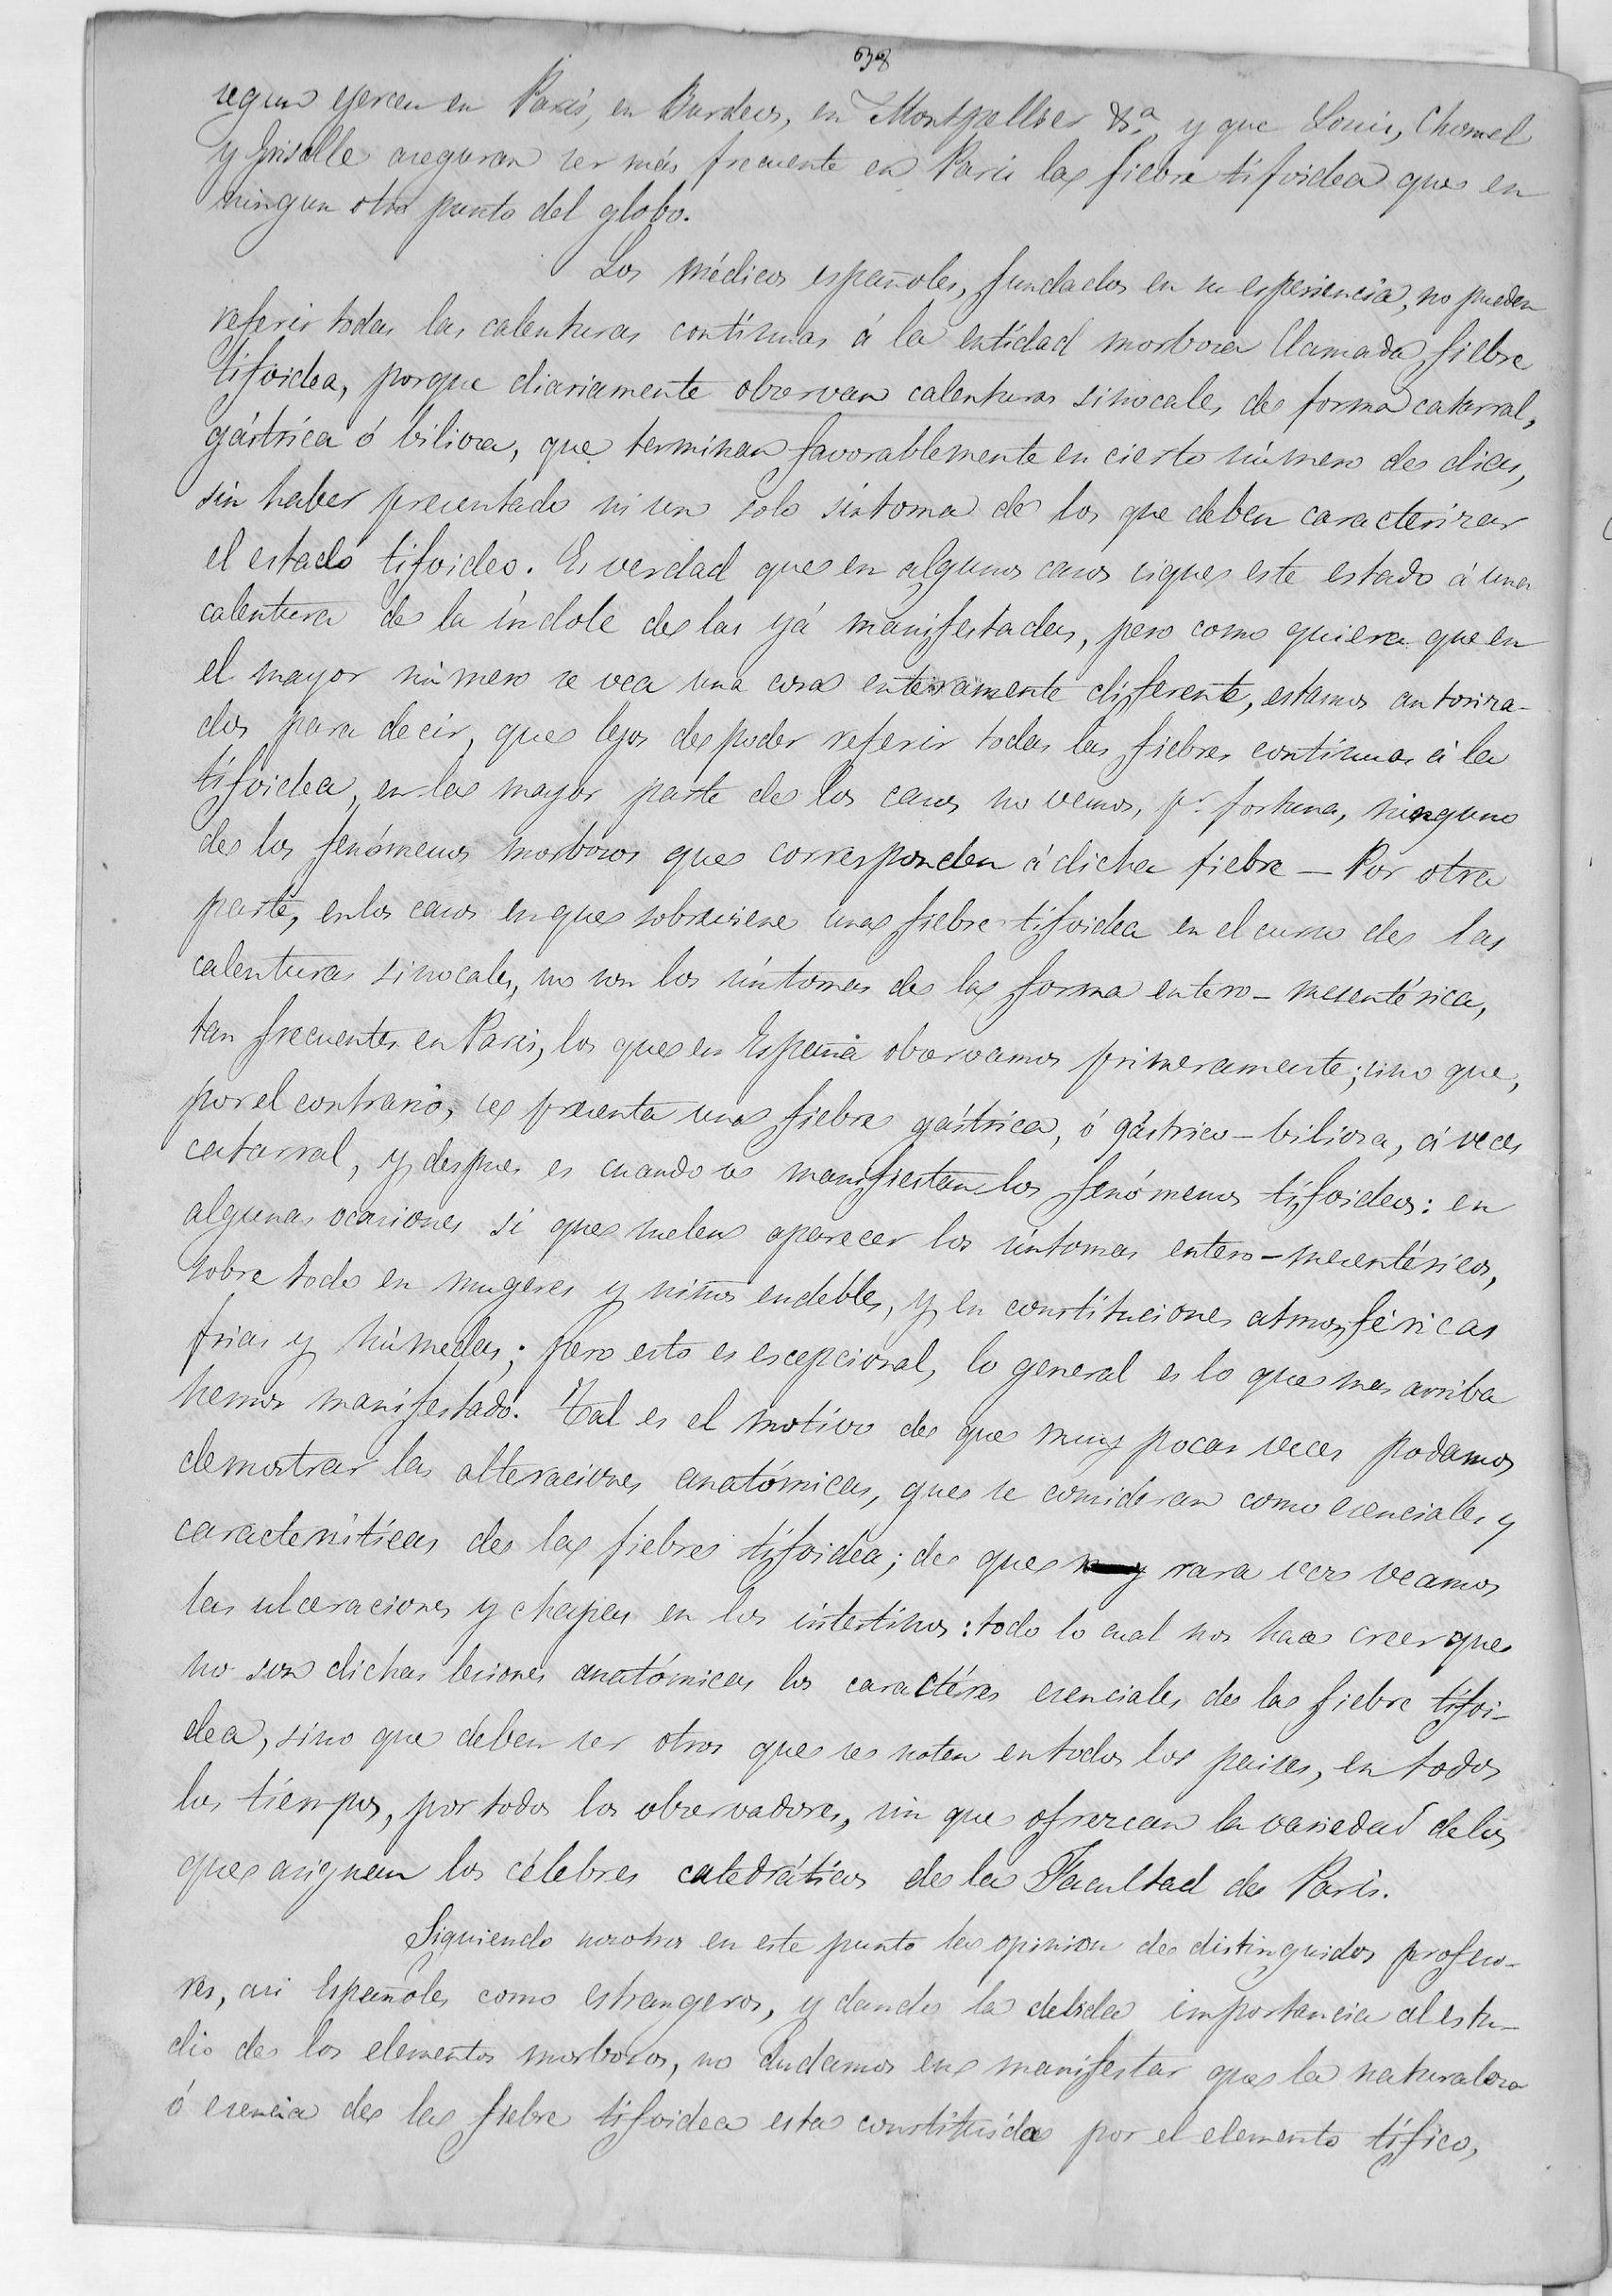 638
segun ejercen en Paris, en Burdeos, en Montpellier &.ª, y que Louis, Chomel
y Grisolle aseguran ser más frecuente en Paris la fiebre tifoidea que en
ningun otro punto del globo.
Los médicos españoles, fundados en su esperiencia, no pueden
referir todas las calenturas contínuas á la entidad morbosa llamada fiebre
tifoidea, porque diariamente observan calenturas sinocales de forma catarral,
gástrica ó biliosa, que terminan favorablemente en cierto número de dias,
sin haber presentado ni un solo síntoma de los que deben caracterizar
el estado tifoideo. Es verdad que en algunos casos sigue este estado á una
calentura de la índole de las yá manifestadas, pero como quiera que en
el mayor número se vea una cosa enteramente diferente, estamos autoriza-
dos para decir, que lejos de poder referir todas las fiebres contínuas á la
tifoidea, en la mayor parte de los casos no vemos, p.r fortuna, ninguno
de los fenómenos morbosos que corresponden á dicha fiebre — Por otra
parte, en los casos en que sobreviene una fiebre tifoidea en el curso de las
calenturas sinocales, no son los síntomas de la forma entero-mesentérica,
tan frecuentes en Paris, los que en España observamos primeramente; sino que,
por el contrario, se presenta una fiebre gástrica, ó gástrico-biliosa, á veces
catarral, y despues es cuando se manifiestan los fenómenos tifoideos: en
algunas ocasiones si que suelen aparecer los síntomas entero-mesentéricos,
sobre todo en mugeres y niños endebles, y en constituciones atmosféricas
frias y húmedas; pero esto es escepcional, lo general es lo que mas arriba
hemos manifestado. Tal es el motivo de que muy pocas veces podamos
demostrar las alteraciones anatómicas, que se consideran como esenciales y
características de la fiebre tifoidea; de que rara vez veamos
las ulceraciones y chapas en los intestinos: todo lo cual nos hace creer que
no son dichas lesiones anatómicas los caractéres esenciales de la fiebre tifoi-
dea, sino que deben ser otros que se noten en todos los paises, en todos
los tiempos, por todos los observadores, sin que ofrezcan la variedad de los
que asignan los célebres catedráticos de la Facultad de Paris.
Siguiendo nosotros en este punto la opinion de distinguidos profeso-
res, asi Españoles como estrangeros, y dando la debida importancia al estu-
dio de los elementos morbosos, no dudamos en manifestar que la naturaleza
ó esencia de la fiebre tifoidea esta constituida por el elemento tífico,